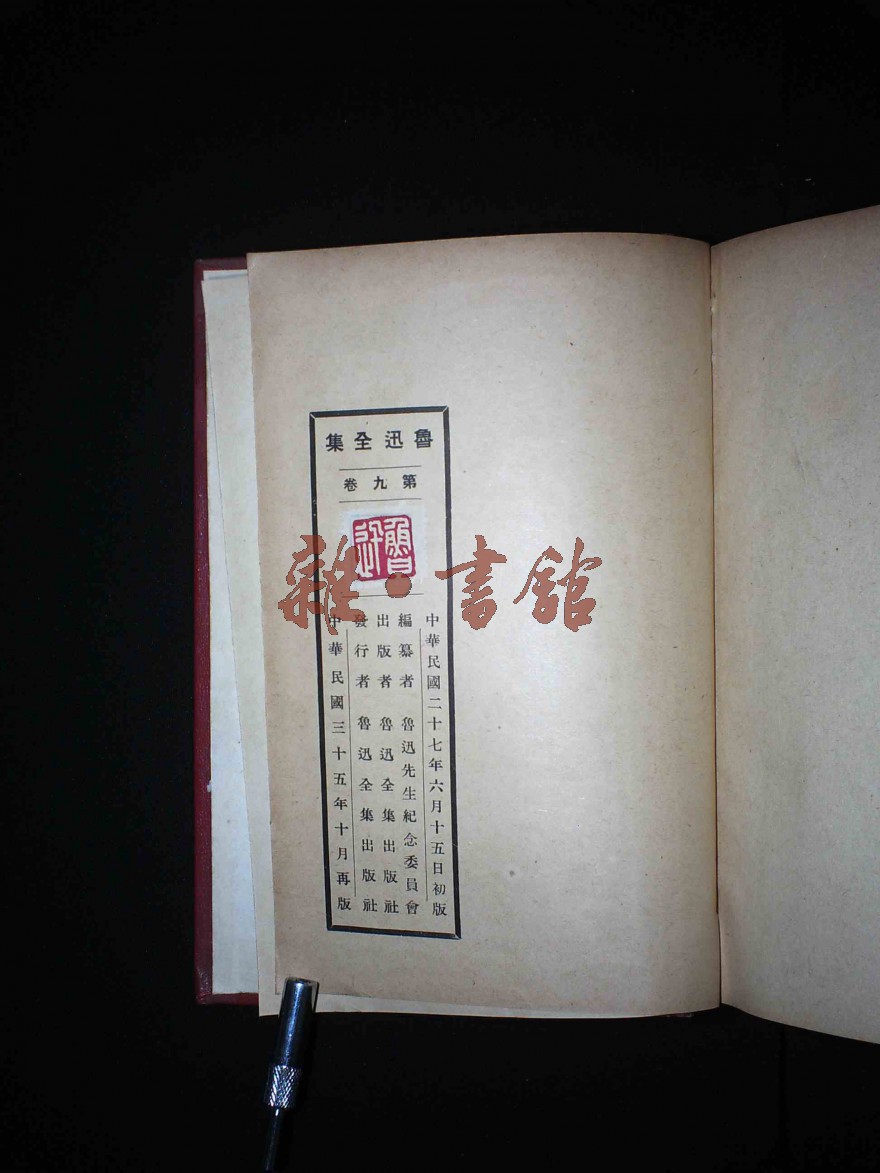 魯迅全集
第九卷
魯迅
中華民國二十七年六月十五日初版
編纂者 魯迅先生紀念委員會
出版者 魯迅全集出版社
發行者 魯迅全集出版社
中華民國三十五年十月再版
雜·書館